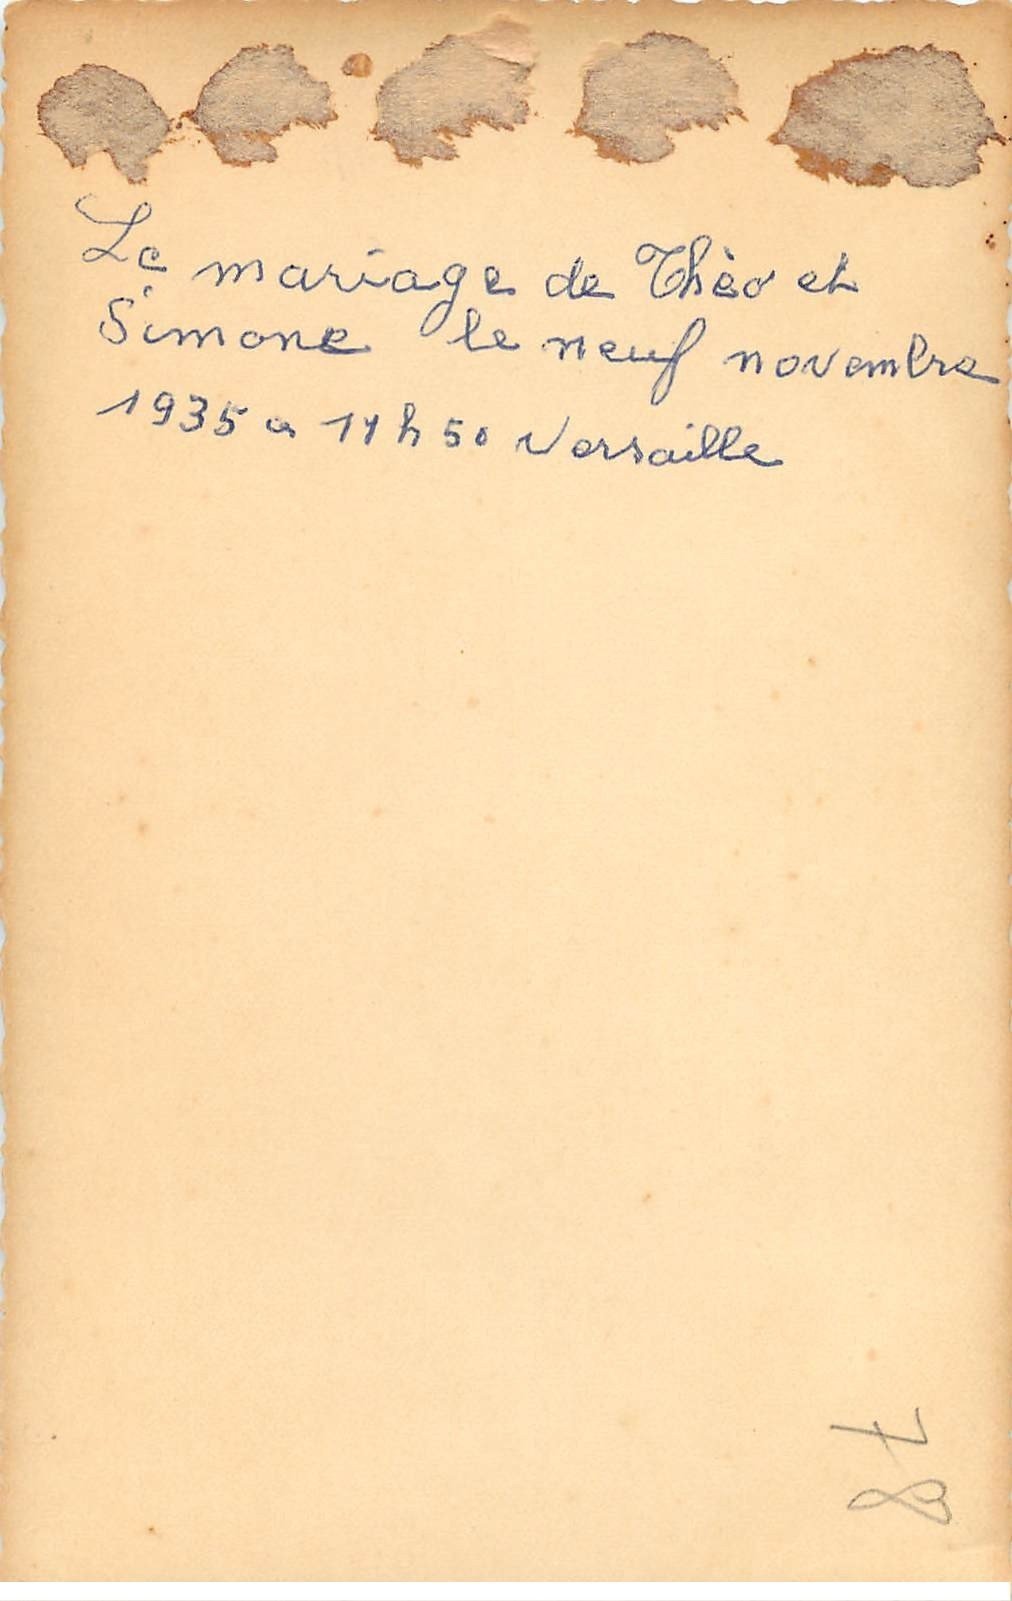 Le mariage de Thèo et
Simone le neuf novembre
1935 a 11h50 Versaille
78